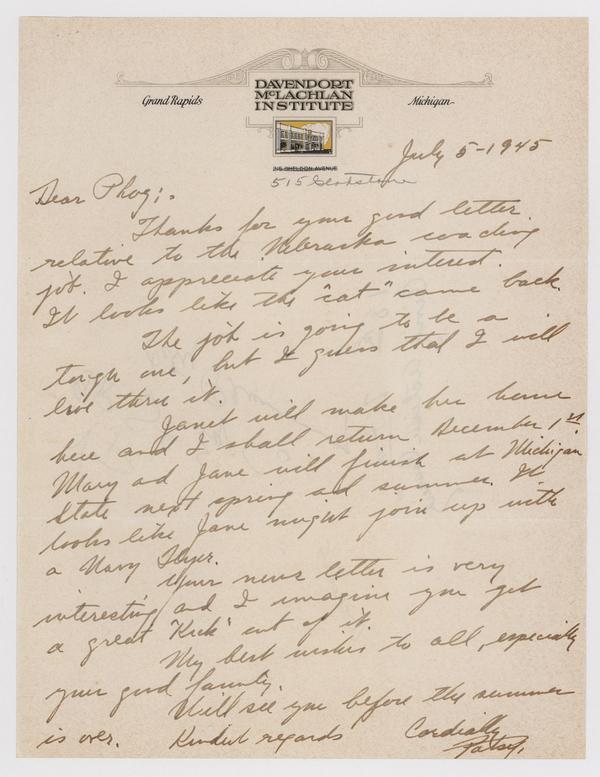 DAVENPORT
McLACHLAN
INSTITUTE
Grand Rapids
Michigan
215 SHELDON AVENUE
515 Gladstone
July 5-1945
Dear Phog:.
Thanks for your good letter
relative to the Nebraska coaching
job. I appreciate your interest.
It looks like the "cat" came back.
The job is going to be a
tough one, but I guess that I will
live thru it.
Janet will make her home
here and I shall return December 1st
Mary ad Jane will finish at Michigan
State next spring ad summer. It
looks like Jane might join up with
a Navy Flyer.
Your news letter is very
interesting ad I imagine you get
a great "Kick" out of it.
My best wishes to all, especially
your good family.
Will see you before the summer
is over. Kindest regards
Cordially
Patsy.